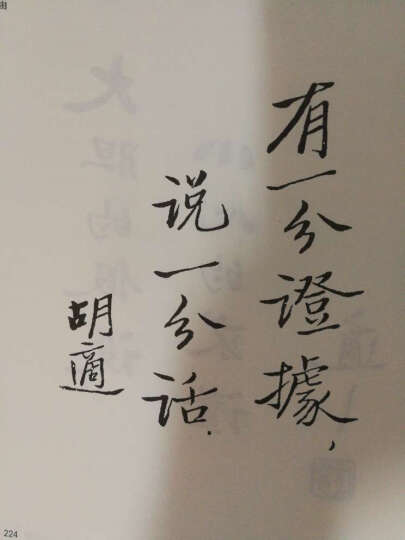 有一分證據，
说一分话.
胡適
224